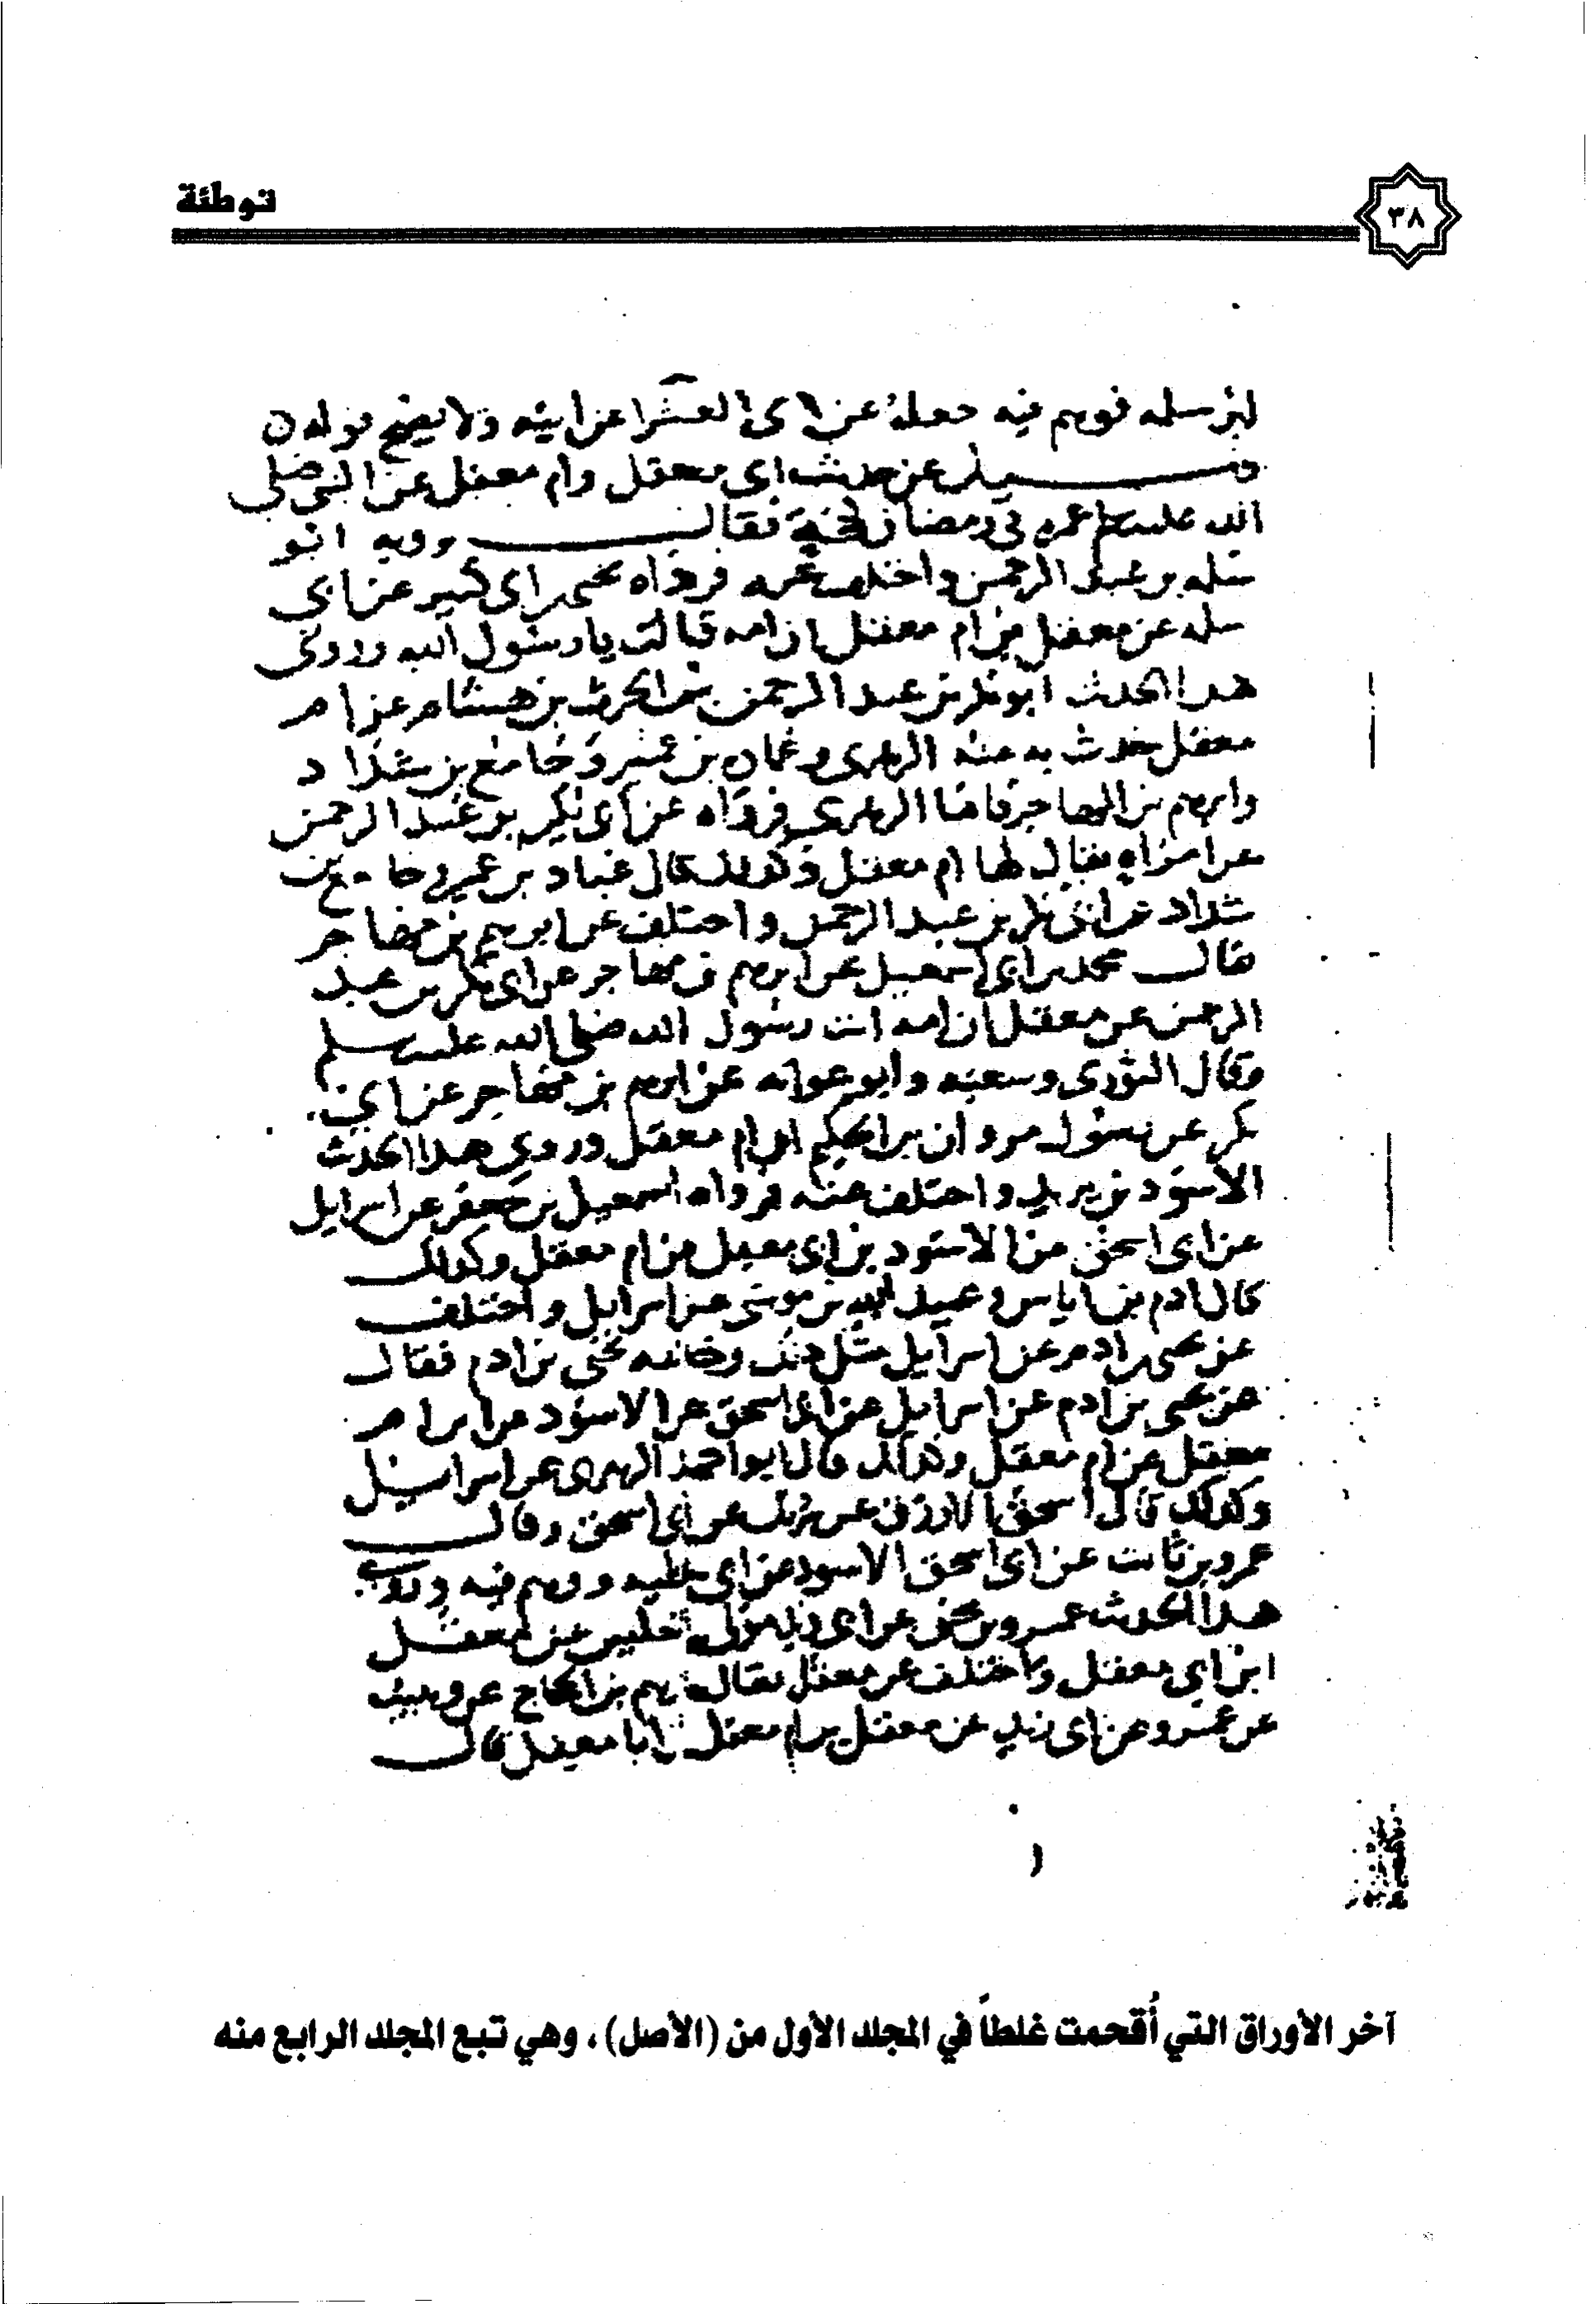 توطئة
٣٨
بن سلمه فوهم فيه جعله عن ابى العشرا عن ابيه ولا يصح قوله
وسيل عن حديث ابى معقل وام معقل عن النبي صلى
الله عليه وسلم عمره فى رمضان حجة فقال يرويه ابو
سلمه بن عبد الرحمن واختلف عنه فرواه يحيى بن ابى كثير عن ابى
سلمه عن معقل بن ام معقل ان امه قالت يا رسول الله وروى
هدا الحديث ابو بكر بن عبد الرحمن بن الحرث بن هشام عن ام
معقل حدث به عنه الزهرى و بن عمير وجامع بن شداد
وابرهيم بن المهاجر فاما الزهرى فرواه عن ابى بكر بن عبد الرحمن
عن امراه يقال لها ام معقل وكذلك قال بن عمير وجامع بن
شداد عن ابى بكر بن عبد الرحمن واختلف عن ابرهيم بن مهاجر
فقال محمد بن ابى اسمعيل عن ابرهيم بن مهاجر عن ابى بكر بن عبد
الرحمن عن معقل ان امه اتت رسول الله صلى الله عليه وسلم
وقال الثورى وسعبه وابو عوانه عن ابرهيم بن مهاجر عن ابى
بكر عن رسول مروان بن الحكم الى ام معقل وروى هدا الحديث
الاسود بن يزيد واختلف عنه فرواه اسمعيل بن جعفر عن اسرايل
عن ابى اسحق عن الاسود بن ابى معقل عن ام معقل وكذلك
قال ادم بن اياس وعبيد الله بن موسى عن اسرايل واختلف
عن يحيى بن ادم عن اسرايل مثل وخالفه يحيى بن ادم فقال
عن يحيى بن ادم عن اسرايل عن ابى اسحق عن الاسود عن ابن ام
معقل عن ام معقل وكذلك قال ابو احمد الزبيرى عن اسرايل
وكذلك قال اسحق الازرق عن شريك عن ابى اسحق وقال
عمرو بن ثابت عن ابى اسحق الاسود عن ابى طليق ووهم فيه وروى
هدا الحديث عمرو بن يحيى عن ابى زيد مولى ثعلبه عن معقل
ابن ابى معقل واختلف عن معقل فقال ابرهيم بن الحجاج عن وهيب
عن عمرو عن ابى زيد عن معقل بن ام معقل ان ابا معقل قال
آخر الأوراق التي أُقحمت غلطاً في المجلد الأول من (الأصل)، وهي تبع المجلد الرابع منه